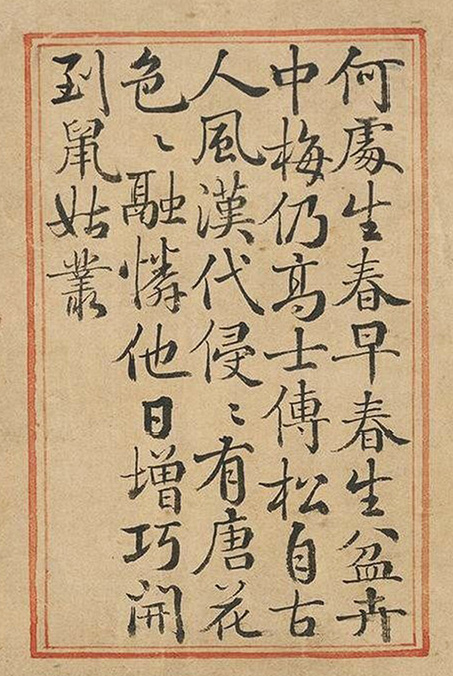 何處生春早春生盆卉
中梅仍高士傳松自古
人風漢代侵〻有唐花
色〻融憐他日增巧開
到鼠姑叢